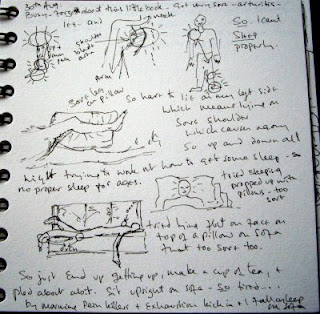 30th Aug.
Busy - forgot about this little book - Got very sore - arthritis -
leg - and
week
So I can't
Sleep
properly.
shoulder
blade
arm
pain
Arm
Sore leg
on pillow
So hard to lie on my left side
which means lying on
Sore shoulder
which causes agony
So up and down all
night trying to work out how to get some sleep - so
no proper sleep for ages.
tried sleeping
propped up with
pillows - too
sore
tried lying flat on face on
top of a pillow on sofa
that too sore too.
So just end up getting up, make a cup of tea, &
plod about a bit. Sit upright on sofa - So tired...
by morning Pain killers + Exhaustion kick in & I fall asleep
on sofa